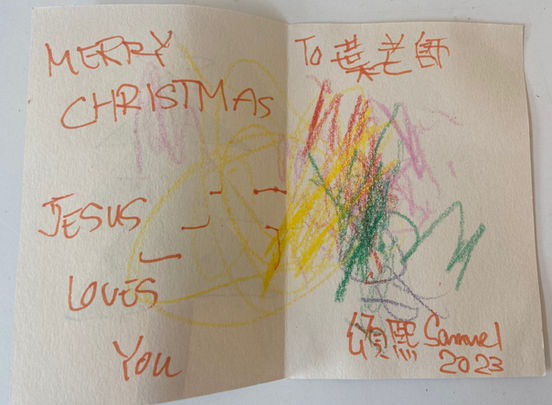 MERRY
CHRISTMAS
JESUS
LOVES
YOU
To 葉老師
頌熙 Samuel
2023